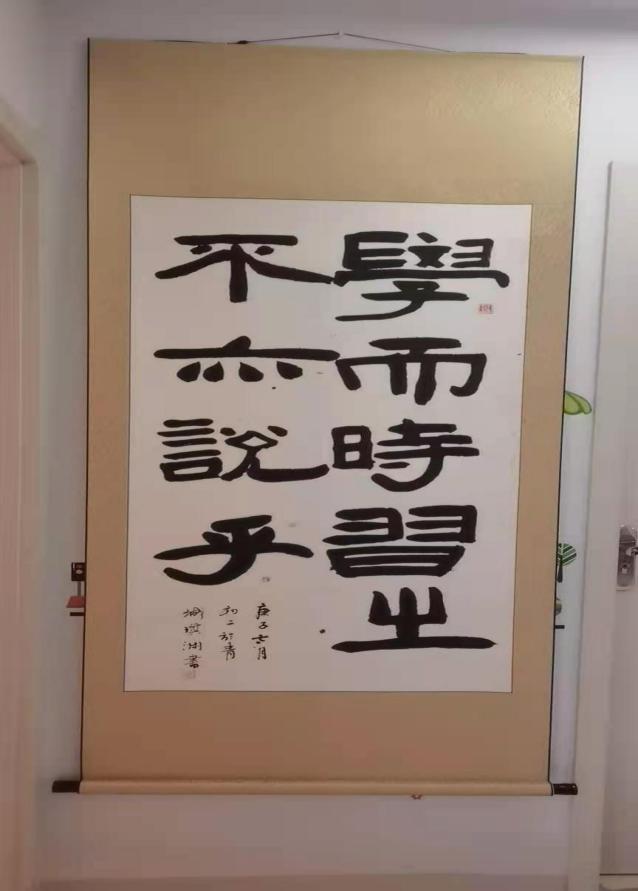 學而時習之
不亦說乎
庚子六月
初二於青